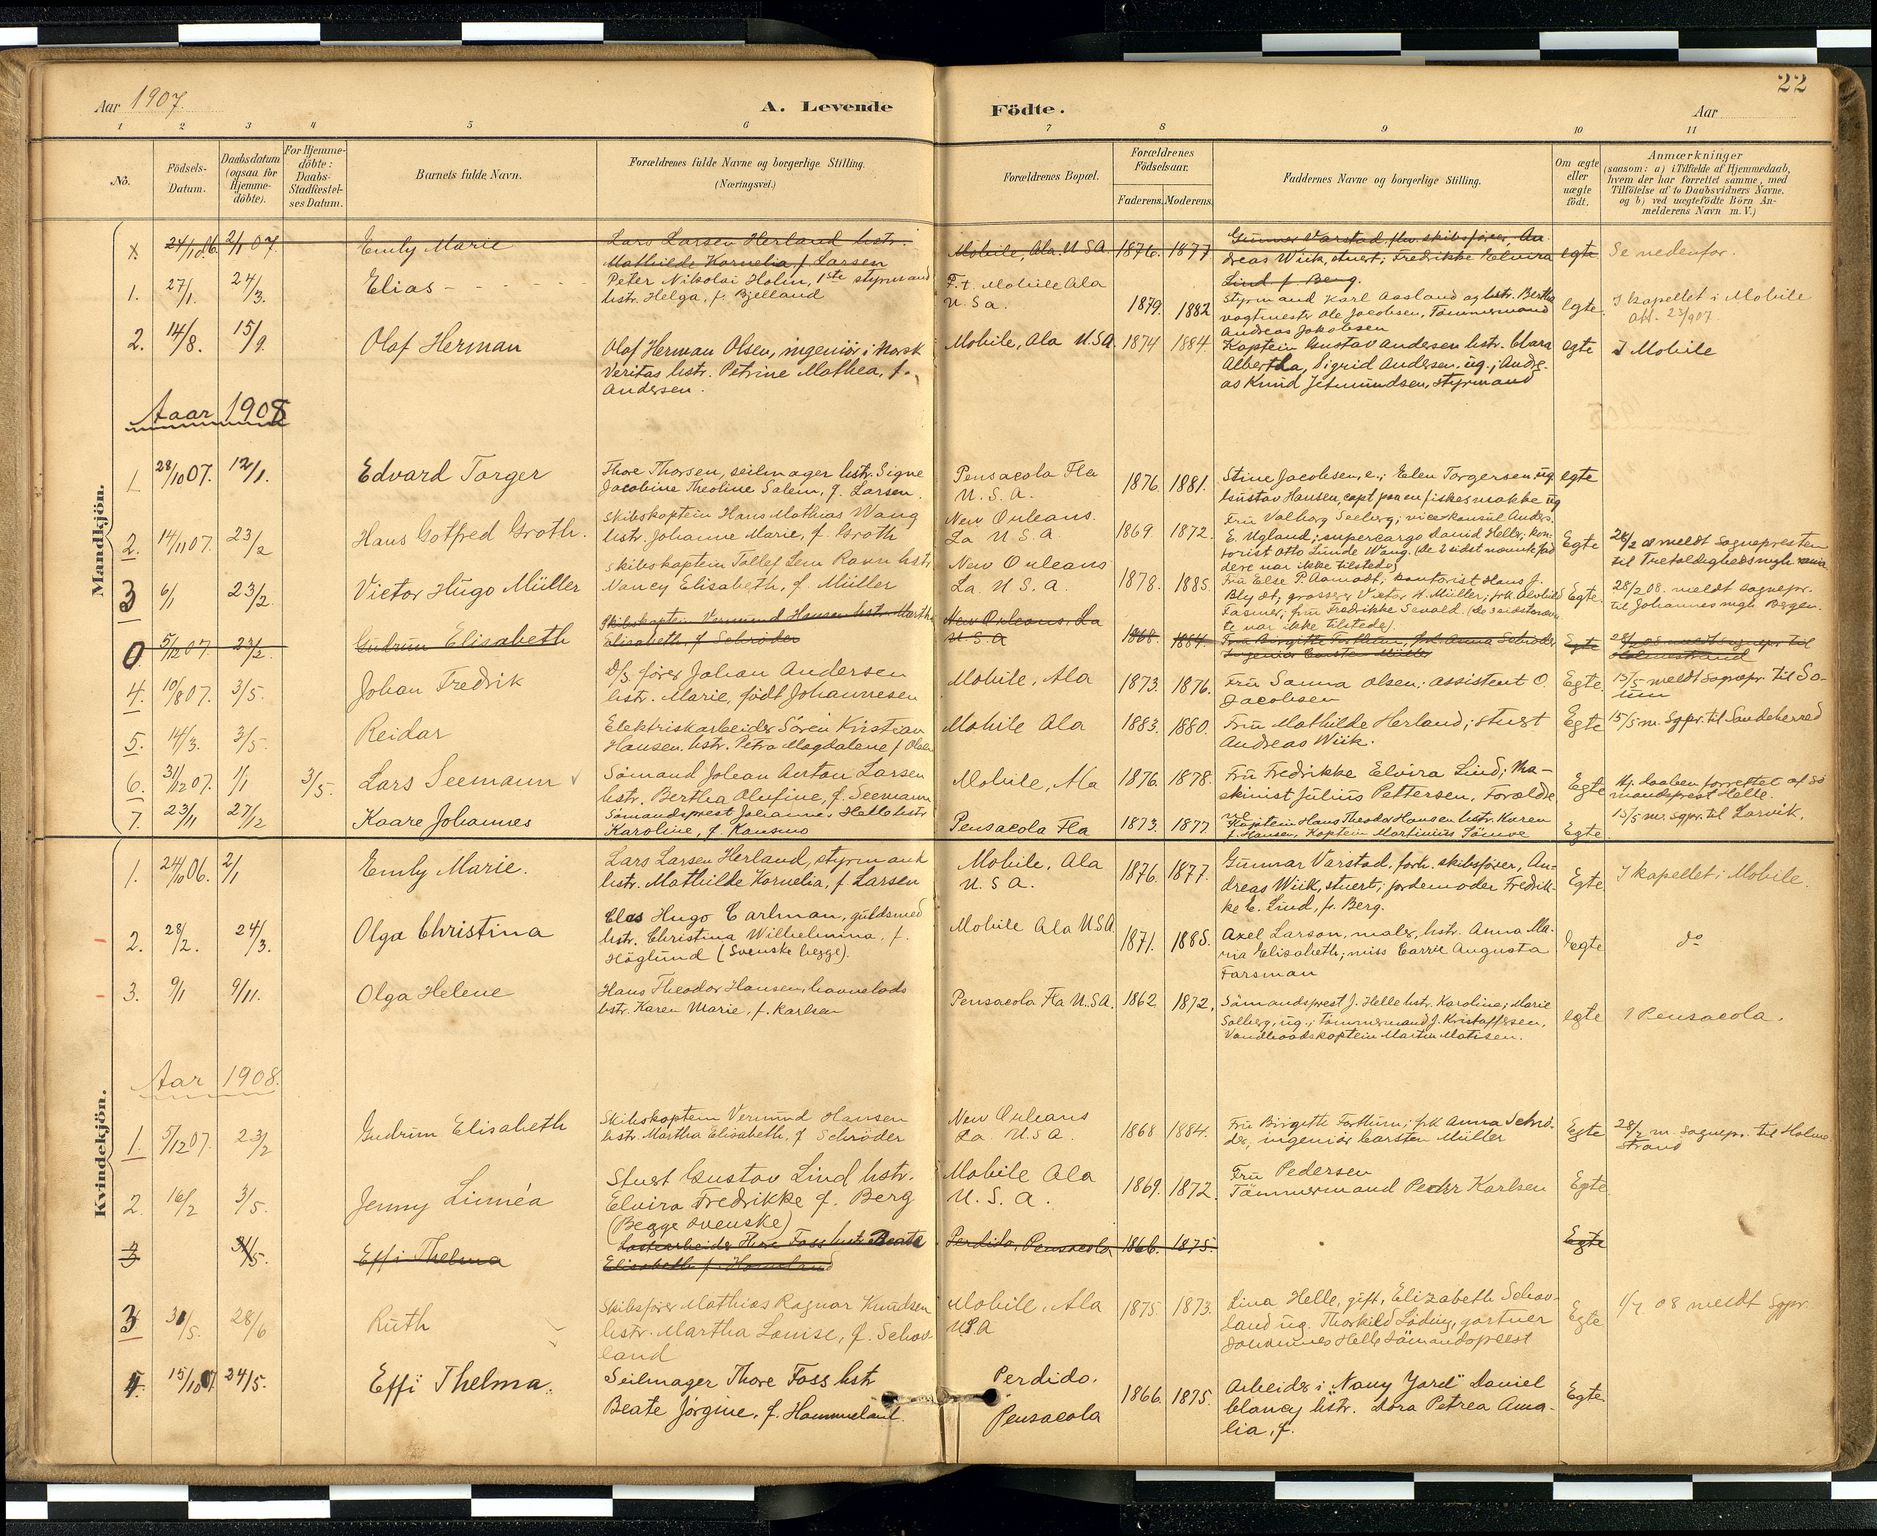 22
Aar 1907.
A. Levende Födte.
Aar
1 2 3 4 5 6 7 8 9 10 11
No.
Födsels-Datum.
Daabsdatum (ogsaa for Hjemme-döbte).
For Hjemme-döbte: Daabs-Stadfæstel-ses Datum.
Barnets fulde Navn.
Forældrenes fulde Navne og borgerlige Stilling.
(Næringsvei.)
Forældrenes Bopæl.
Forældrenes Födselsaar.
Faderens. Moderens.
Faddernes Navne og borgerlige Stilling.
Om ægte eller uægte født.
Anmærkninger
(saasom: a) i Tilfælde af Hjemmedaab,
hvem der har forrettet samme, med
Tilföielse af to Daabsvidners Navne,
og b) ved uægtefödte Börn An-
melderens Navn m. V.)
Mandkjön.
x 24/10 06. 2/1 07. Emily Marie
Lars Larsen Herland hstr.
Mathilde Kornelia f. Larsen
Mobile, Ala. U.S.A. 1876. 1877
Gunnar Varstad, skibsfører, An-
dreas Wiik, stuert; Fredrikke Elvira
Lind f. Berg.
egte Se nedenfor.
1. 27/1. 24/3. Elias
Peter Nikolai Holm, 1ste styrmand
hstr. Helga, f. Bjelland
F.t. Mobile Ala
U.S.a. 1879. 1882
Styrmand Karl Aasland og hstr. Bertha
vagtmestr Ole Jacobsen, Tømmermand
Andreas Jakobsen
egte. I kapellet i Mobile
2. 14/8. 15/9. Olaf Herman
Olaf Herman Olsen, ingeniør i Norsk
Veritas hstr. Petrine Mathea, f.
Andersen.
Mobile, Ala U.S.A. 1874 1884.
Kaptein Gustav Andersen hstr. Clara
Albertha, Sigrid Andersen, ug.; Andre-
as Knud Jetmundsen, styrmand
egte I Mobile
Aaar 1908
1 28/10 07. 12/1. Edvard Torger
Thore Thorsen, seilmager hstr. Signe
Jacobine Theoline Salem, f. Larsen.
Pensacola Fla
U.S.a. 1876. 1881.
Stine Jacobsen, e.; Elen Torgersen, ug
Gustav Hansen, capt paa en fiskesmakke ug
egte
2. 14/11 07. 23/2 Hans Gotfred Groth.
Skibskaptein Hans Mathias Wang
hstr. Johanne Marie, f. Groth
New Orleans.
La U S A 1869 1872.
Fru Valborg Seeberg; vicekonsul Anders
E. Ugland; supercargo David Helle; kon-
torist Otto Lunde Wang. (De 2 sidst nævnte fad
dere var ikke tilstede)
Egte 28/2 08 meldt Sognepresten
til Trefoldighedsmgh.
3 6/1 23/2. Victor Hugo Müller
Skibskaptein Tollef Lem Ravn hstr
Nancy Elisabeth, f. Müller
New Orleans
La. U.S.a. 1878. 1885
Fru Else P. Aamodt; kontorist Hans J.
Blydt, grosserer Victor H. Müller; frk Alvhild
Fasmer; fru Fredrikke Sevald (De 3 sidstnævn-
te var ikke tilstede).
Egte. 28/2 08. meldt sognepr.
til Johannesmgh Bergen.
0 5/12 07. 23/2. Gudrun Elisabeth
Skibskaptein Vermund Hansen hstr. Martha
Elisabeth, f. Schrøder
New Orleans, La
U S A 1868. 1884.
Fru Birgitte Forthun, frk Anna Schrøder,
ingeniør Carsten Müller
Egte 28/2 08 meldt sognepr til
Holmestrand
4. 10/8 07. 3/5. Johan Fredrik
D/S. fører Johan Andersen
hstr. Marie, født Johannesen
Mobile, Ala 1873. 1876.
Fru Sanna Olsen; assistent O.
Jacobsen
Egte. 15/5 meldt sognepr. til So-
5. 14/3. 3/5. Reidar
Elektriskarbeider Søren Kristian
Hansen. hstr. Petra Magdalene f Olsen
Mobile Ala 1883. 1880.
Fru Mathilde Herland; stuert
Andreas Wiik.
Egte 15/5 m. Sgpr. til Sandeherred
6. 31/12 07. 1/1 3/5. Lars Seemann
Sømand Johan Anton Larsen
hstr. Bertha Olufine, f. Seemann
Mobile, Ala 1876. 1878.
Fru Fredrikke Elvira Lind; Ma-
skinist Julius Pettersen, Foræld
Egte Hj. daaben forrettet af sø
mandsprest Helle.
15/5 m. sgpr. til Larvik.
7. 23/11 27/12 Kaare Johannes
Sømandsprest Johannes Helle hstr
Karoline, f. Kausmo
Pensacola Fla 1873. 1877
Kaptein Hans Theodor Hansen hstr. Karen
f. Hansen, Kaptein Martinius Sømve
Egte
Kvindekjön.
1. 24/10 06. 2/1 Emily Marie.
Lars Larsen Herland, styrmand
hstr. Mathilde Kornelia, f. Larsen
Mobile, Ala
U.S.a. 1876. 1877.
Gunnar Varstad, forh. skibsfører, An-
dreas Wiik, stuert; jordemoder Fredrik-
ke E. Lind, f. Berg.
Egte I kapellet i Mobile.
2. 28/2. 24/3. Olga Christina
Clas Hugo Carlman, guldsmed
hstr. Christina Wilhelmina, f.
Höglund (Svenske begge).
Mobile Ala U.S.A 1871. 1885.
Axel Larson, maler, hstr. Anna Ma-
ria Elisabeth; miss Carrie Augusta
Farsman
egte do
3. 9/1 9/11. Olga Helene
Hans Theodor Hansen, havnelods
hstr. Karen Marie, f. Karlsen
Pensacola Fla U.S.A. 1862 1872.
Sömandsprest J. Helle hstr. Karoline; Marie
Solberg, ug.; Tömmermand J. Kristoffersen,
Vandbaadskaptein Martin Matisen.
egte I Pensacola.
Aar 1908.
1. 5/12 07. 23/2 Gudrun Elisabeth
Skibskaptein Vermund Hansen
hstr. Martha Elisabeth, f Schrøder
New Orleans
La. U.S.A. 1868 1884.
Fru Birgitte Forthun; frk Anna Schrø-
der, ingeniør Carsten Müller
Egte 28/2 m. sognepr. til Holme
strand
2. 16/2 3/5. Jenny Linnéa
Stuert Gustav Lind hstr.
Elvira Fredrikke f. Berg
(Begge svenske)
Mobile Ala
U.S.a. 1869. 1872.
Fru Pedersen
Tømmermand Peder Karlsen
Egte
3 24/5. Effi Thelma
Lastearbeider Thore Foss hstr Beate
Elisabeth f. Hommeland
Perdido, Pensacola 1866. 1875.
Egte
3 31/5. 28/6 Ruth
Skibsfører Mathias Ragnar Knudsen
hstr. Martha Louise, f. Schov-
land
Mobile, Ala
USA 1875. 1873.
Lina Helle, gift, Elizabeth Schov-
land ug. Thorkild Löding, gartner
Johannes Helle Sömandsprest
Egte 1/7 08 meldt Sgpr.
4. 15/10 07. 24/5. Effi Thelma.
Seilmager Thore Foss hstr
Beate Jørgine, f. Hommeland.
Perdido.
Pensacola 1866. 1875.
Arbeider i "Navy Yard" Daniel
Clancy hstr. Dora Petrea Ama-
lia, f.
Egte